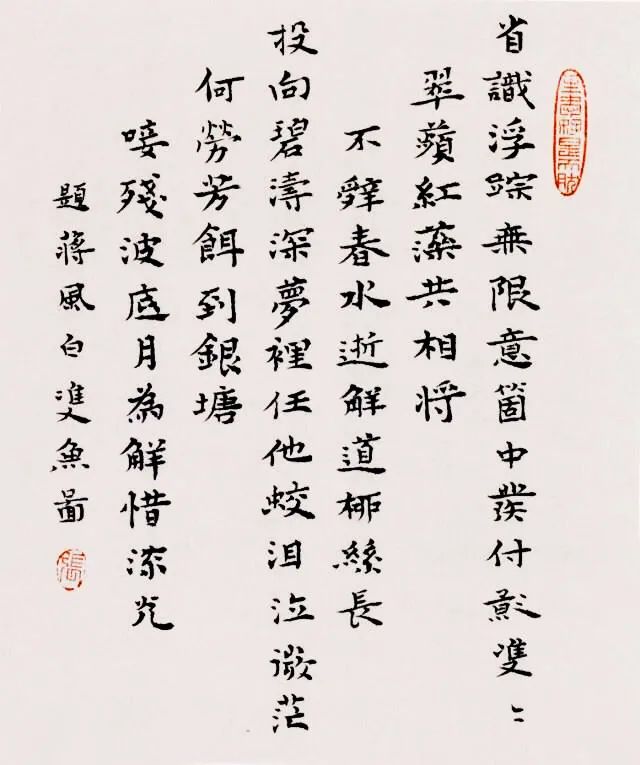 省識浮踪無限意箇中發付影雙〻
翠蘋紅藻共相将
不辤春水逝解道柳絲長
投向碧濤深夢裡任他蛟泪泣微茫
何勞芳餌到銀塘
唼殘波底月為解惜流光
題蔣風白雙魚圖
張